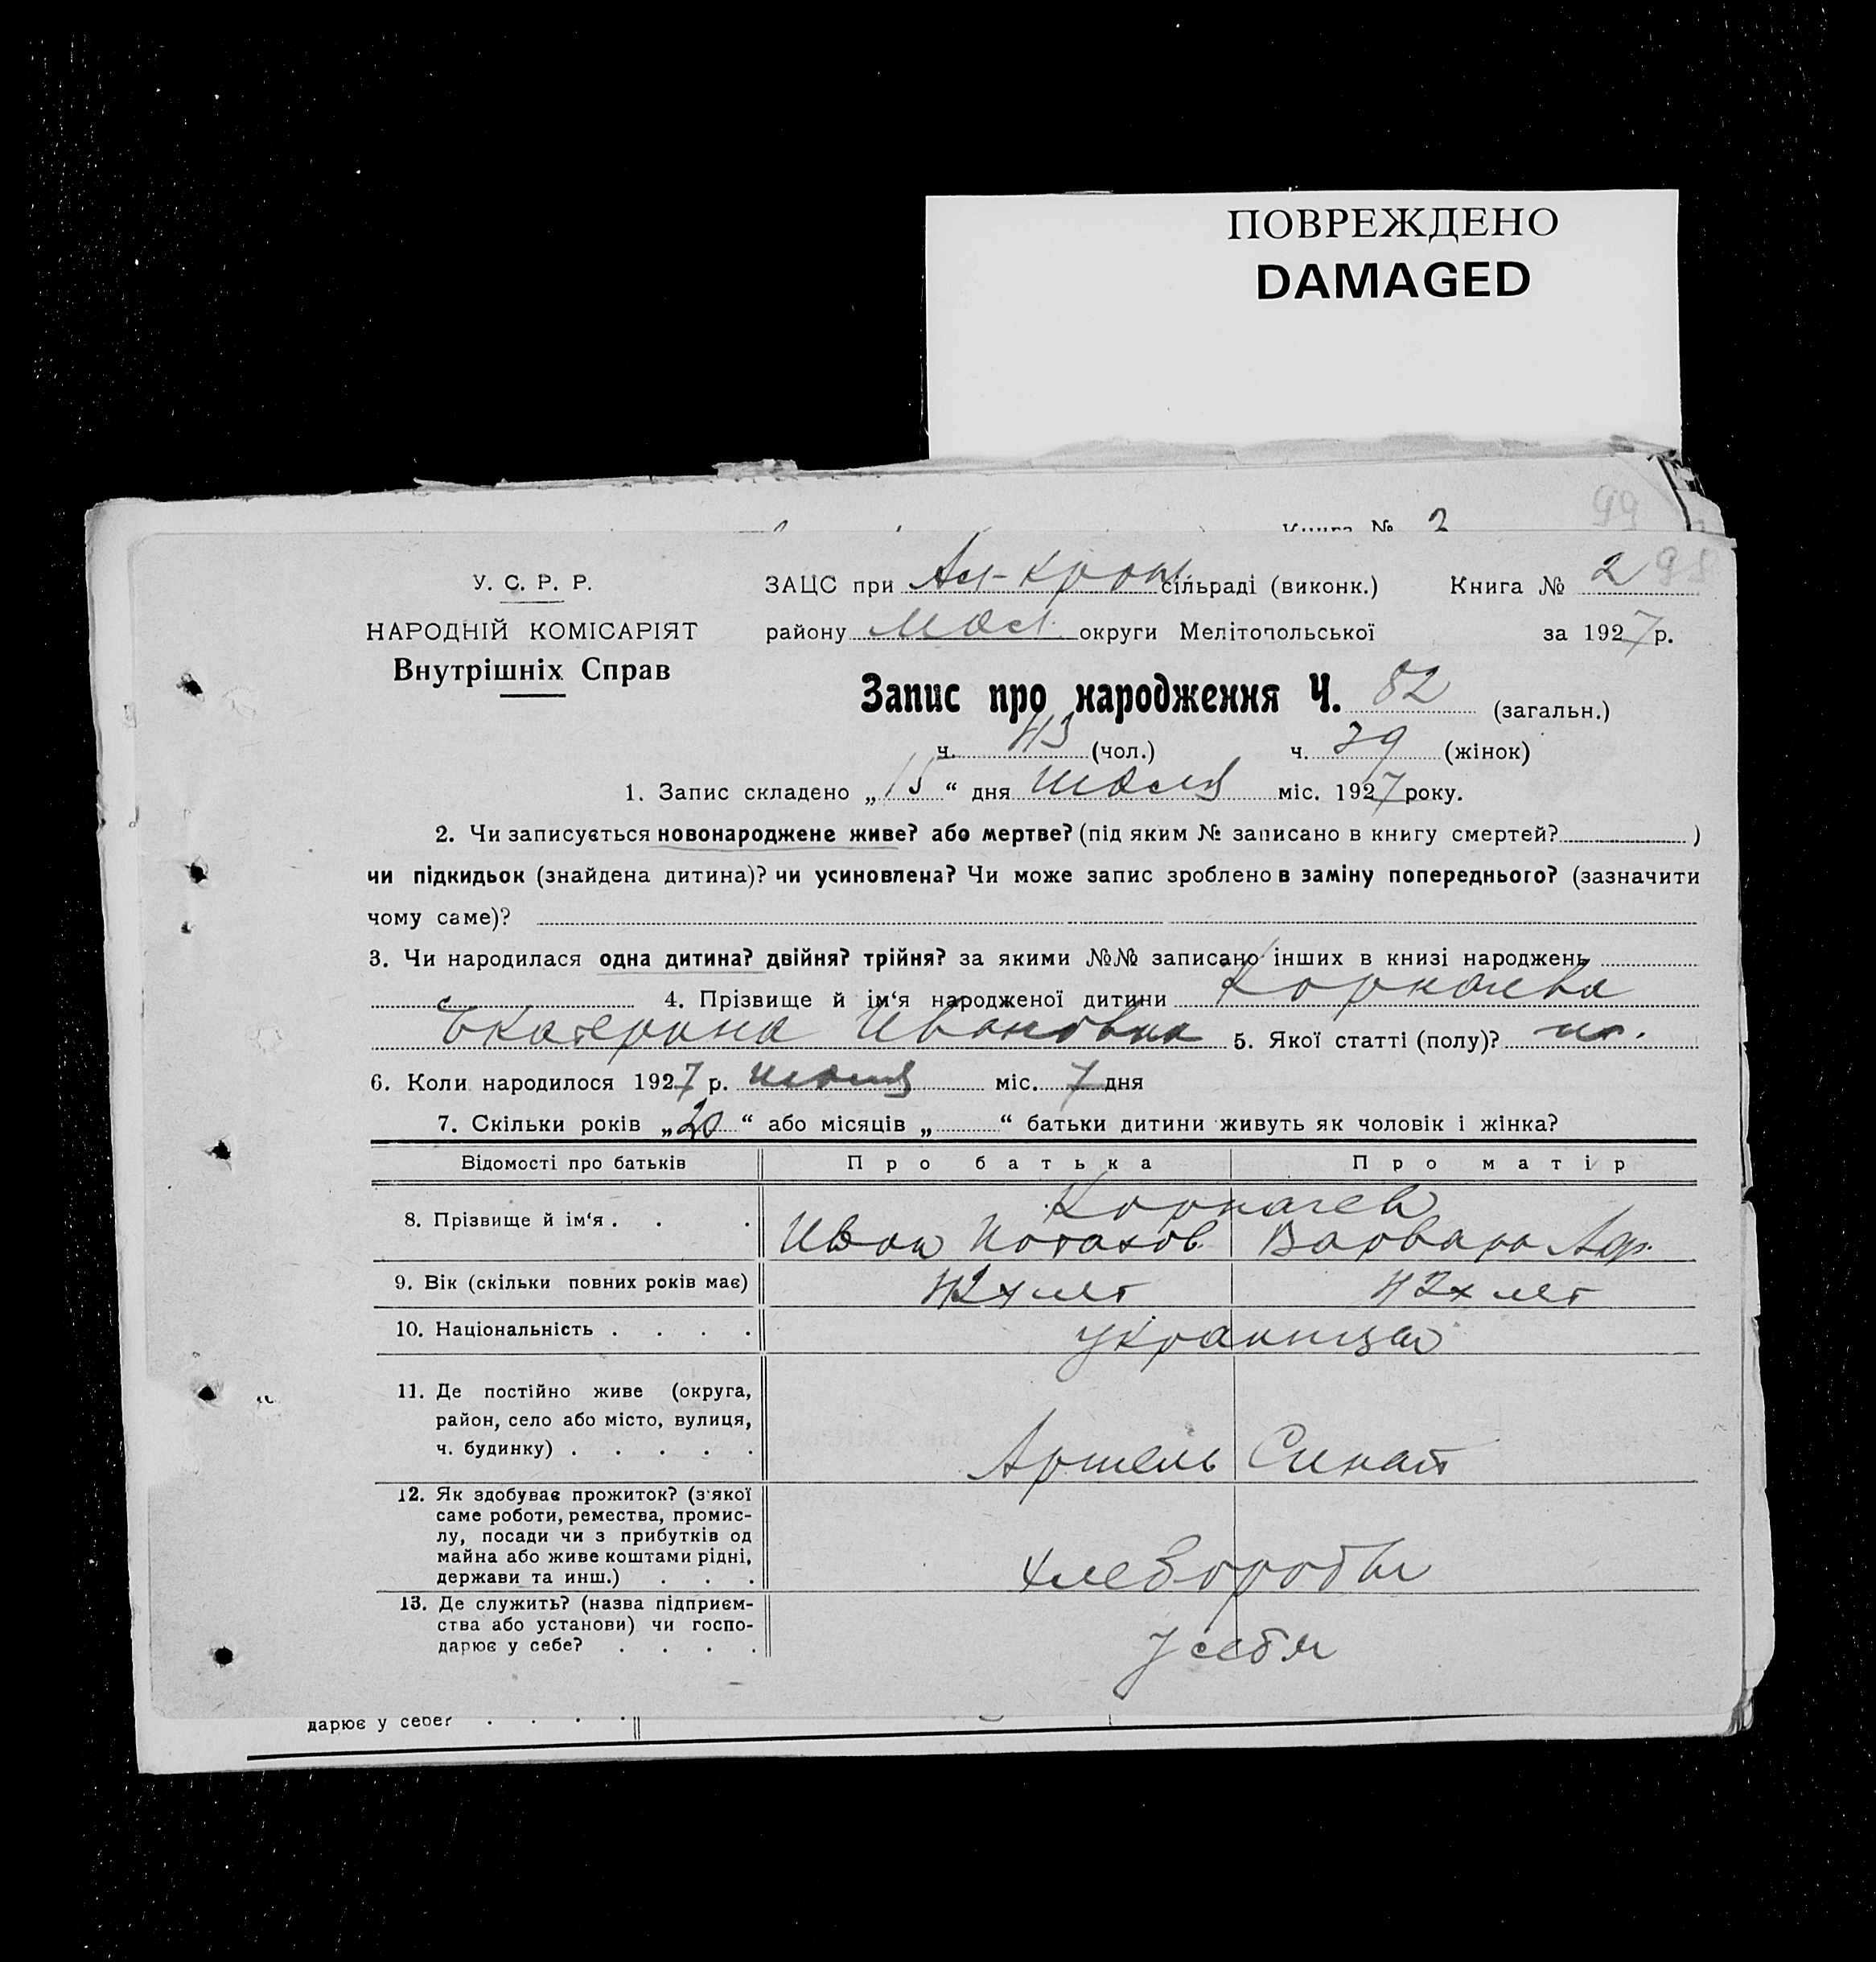 ПОВРЕЖДЕНО
DAMAGED
99
Книга № 2
У. С. Р. Р.
НАРОДНІЙ КОМІСАРІЯТ
Внутрішніх Справ
ЗАЦС при сільраді (виконк.) Книга № 2 98
району округи Мелітопольської за 1927 р.
Запис про народження Ч. 82 (загальн.)
ч. 43 (чол.) ч. 39 (жінок)
1. Запис складено „15“ дня міс. 1927 року.
2. Чи записується новонароджене живе? або мертве? (під яким № записано в книгу смертей? )
чи підкидьок (знайдена дитина)? чи усиновлена? Чи може запис зроблено в заміну попереднього? (зазначити
чому саме)?
3. Чи народилася одна дитина? двійня? трійня? за якими №№ записано інших в книзі народжень
4. Прізвище й ім‘я народженої дитини
Екатерина Ивановна 5. Якої статті (полу)?
6. Коли народилося 1927 р. міс. 7 дня
7. Скільки років „20“ або місяців „ “ батьки дитини живуть як чоловік і жінка?
Відомості про батьків Про батька Про матір
8. Прізвище й ім‘я . . .
Иван Варвара
9. Вік (скільки повних років має) 42х лет 42х лет
10. Національність . . . . украинцы
11. Де постійно живе (округа,
район, село або місто, вулиця,
ч. будинку) . . . . . Артель Синай
12. Як здобуває прожиток? (з'якої
саме роботи, ремества, промис-
лу, посади чи з прибутків од
майна або живе коштами рідні,
держави та инш.) . . . хлеборобы
13. Де служить? (назва підприєм-
ства або установи) чи госпо-
дарює у себе? . . . . у себя
дарює у себе? . . . .